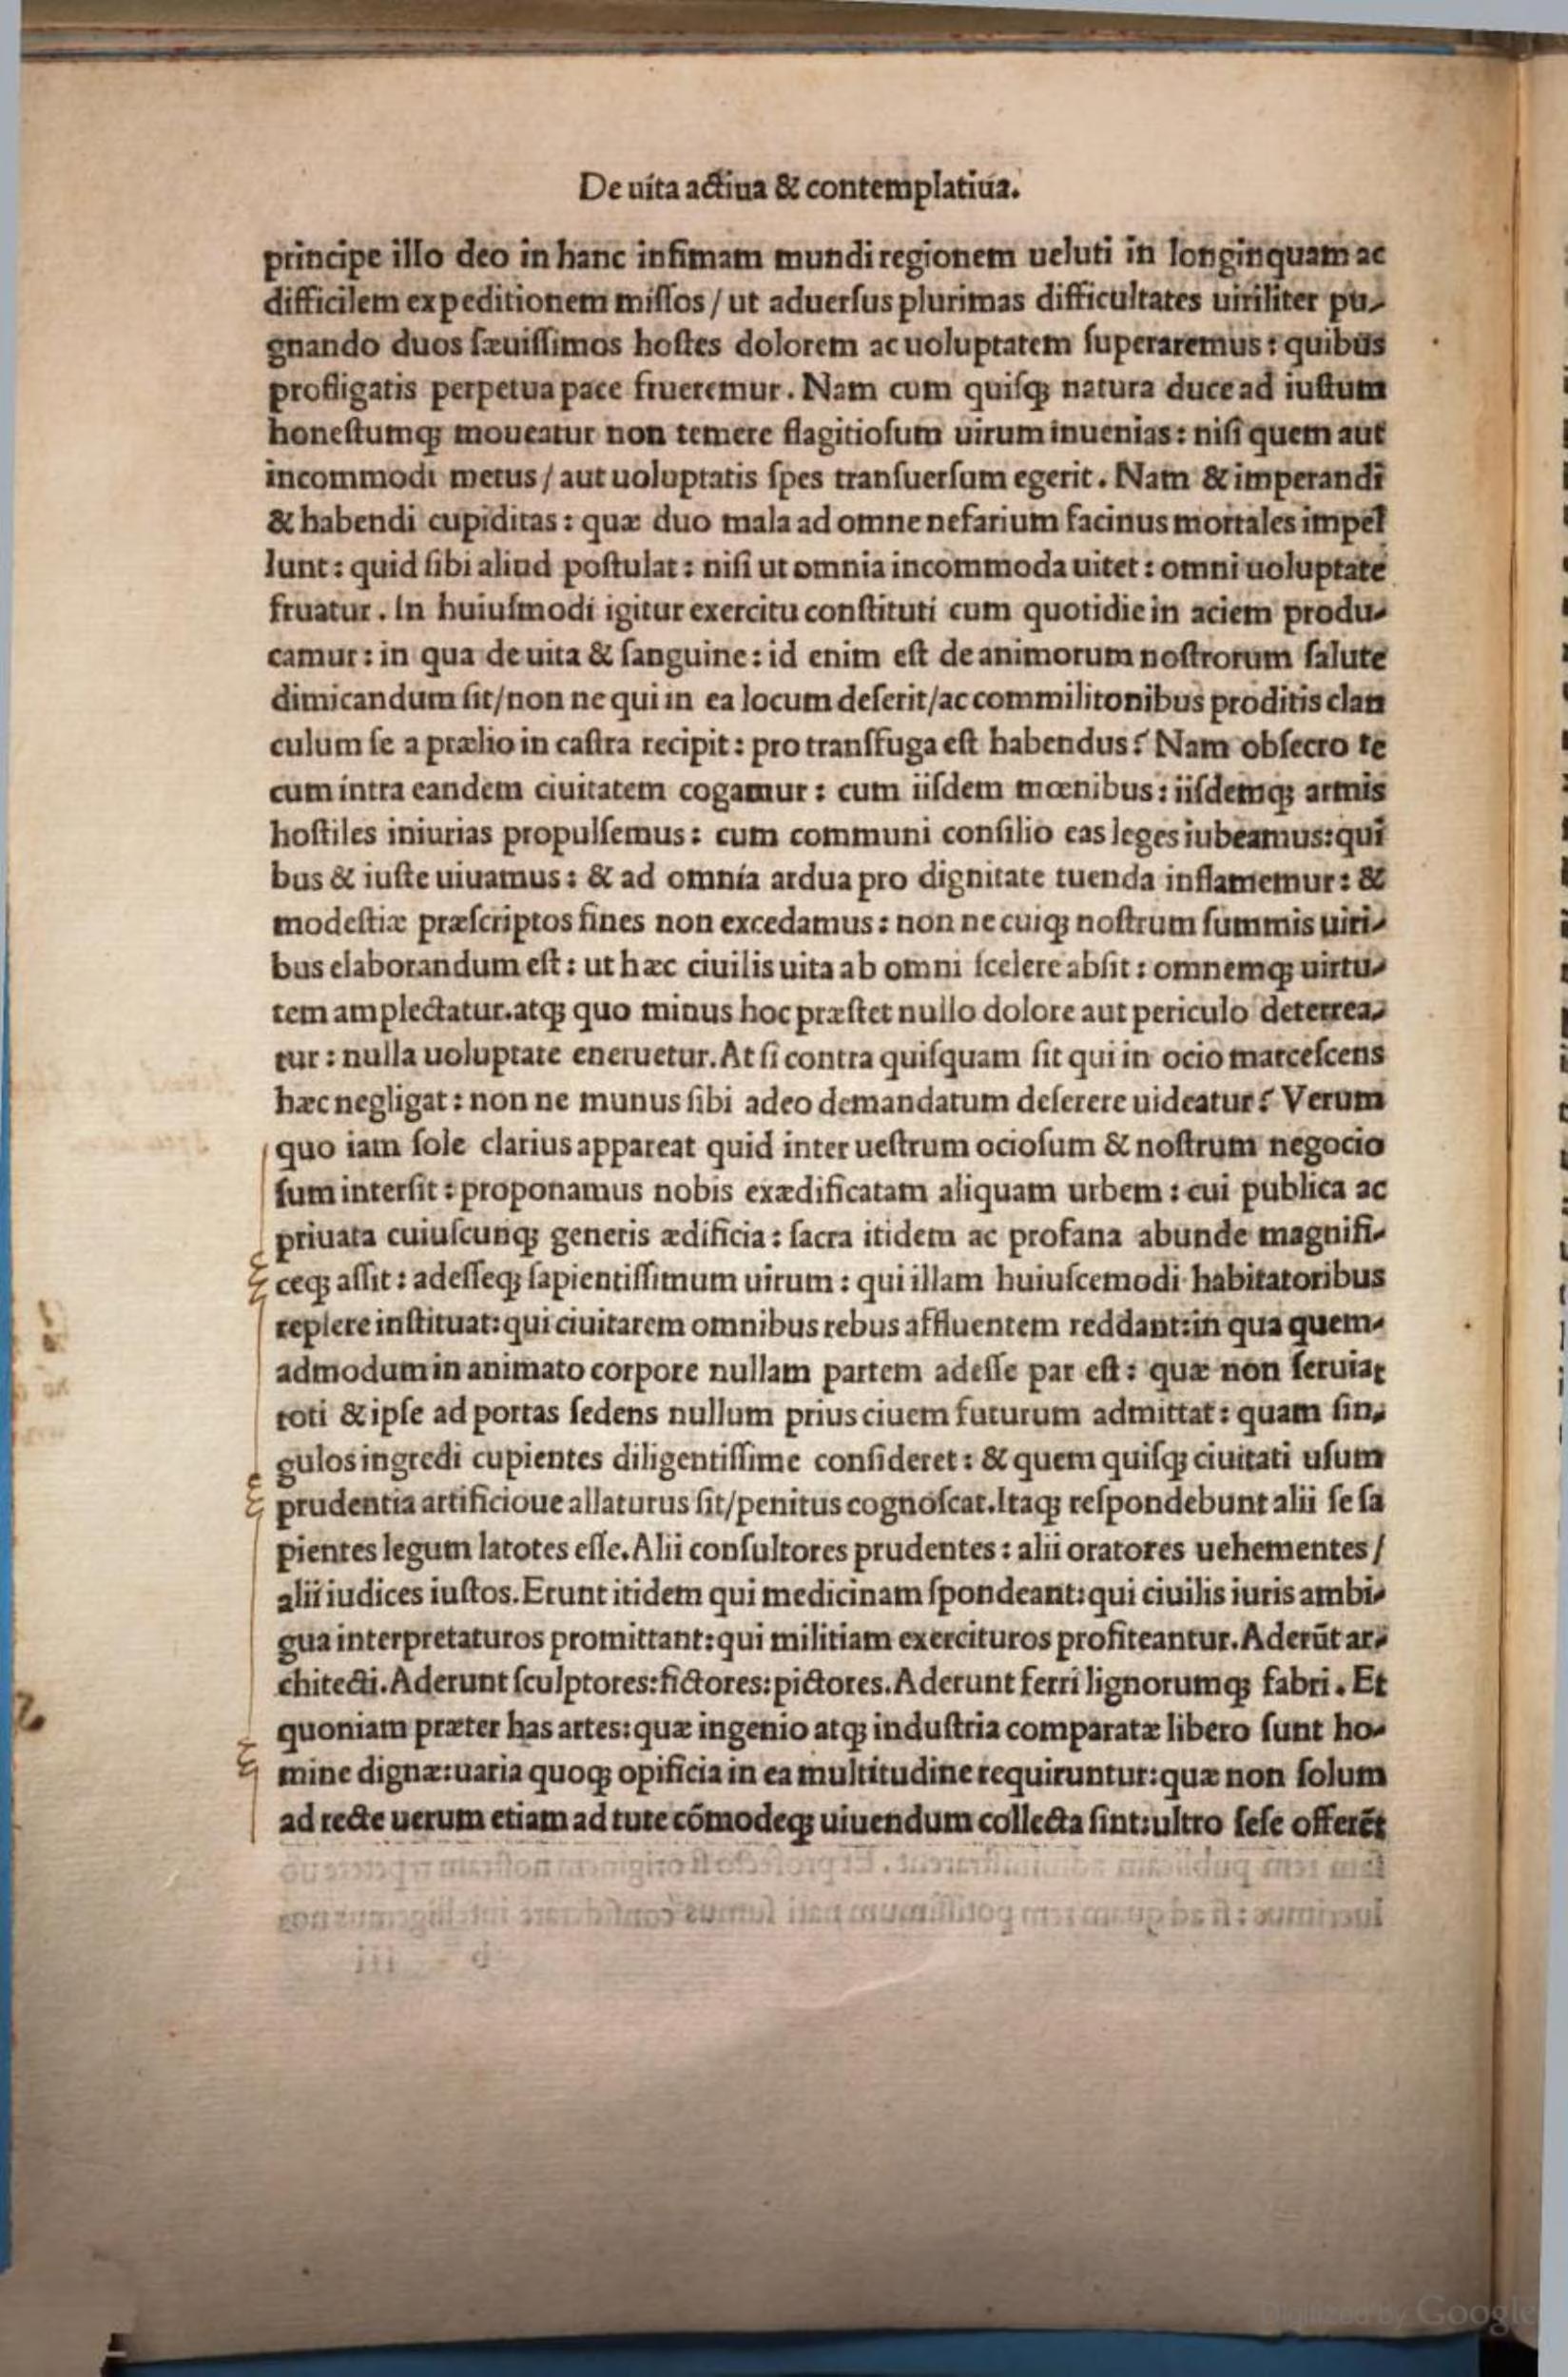 De uita actiua & contemplatiua.
principe illo deo in hanc infimam mundi regionem ueluti in longinquam ac
difficilem expeditionem miſſos / ut aduerſus plurimas difficultates uiriliter pu-
gnando duos ſæuiſſimos hoſtes dolorem ac uoluptatem ſuperaremus : quibus
profligatis perpetua pace frueremur . Nam cum quiſqꝫ natura duce ad iuſtum
honeſtumqꝫ moueatur non temere flagitioſum uirum inuenias : niſi quem aut
incommodi metus / aut uoluptatis ſpes tranſuerſum egerit . Nam & imperandi
& habendi cupiditas : quæ duo mala ad omne nefarium facinus mortales impel
lunt : quid ſibi aliud poſtulat : niſi ut omnia incommoda uitet : omni uoluptate
fruatur . In huiuſmodi igitur exercitu conſtituti cum quotidie in aciem produ-
camur : in qua de uita & ſanguine : id enim eſt de animorum noſtrorum ſalute
dimicandum ſit / non ne qui in ea locum deſerit / ac commilitonibus proditis clan
culum ſe a prælio in caſtra recipit : pro tranſfuga eſt habendus ? Nam obſecro te
cum intra eandem ciuitatem cogamur : cum iiſdem mœnibus : iiſdemqꝫ armis
hoſtiles iniurias propulſemus : cum communi conſilio eas leges iubeamus : qui
bus & iuſte uiuamus : & ad omnia ardua pro dignitate tuenda inflamemur : &
modeſtiæ præſcriptos fines non excedamus : non ne cuiqꝫ noſtrum ſummis uiri-
bus elaborandum eſt : ut hæc ciuilis uita ab omni ſcelere abſit : omnemqꝫ uirtu-
tem amplectatur . atqꝫ quo minus hoc præſtet nullo dolore aut periculo deterrea-
tur : nulla uoluptate eneruetur . At ſi contra quiſquam ſit qui in ocio marceſcens
hæc negligat : non ne munus ſibi adeo demandatum deſerere uideatur ? Verum
quo iam ſole clarius appareat quid inter ueſtrum ocioſum & noſtrum negocio
ſum interſit : proponamus nobis exædificatam aliquam urbem : cui publica ac
priuata cuiuſcunqꝫ generis ædificia : ſacra itidem ac profana abunde magnifi-
ceqꝫ aſſit : adeſſeqꝫ ſapientiſſimum uirum : qui illam huiuſcemodi habitatoribus
replere inſtituat : qui ciuitatem omnibus rebus affluentem reddant : in qua quem-
admodum in animato corpore nullam partem adeſſe par eſt : quæ non ſeruiat
toti & ipſe ad portas ſedens nullum prius ciuem futurum admittat : quam ſin-
gulos ingredi cupientes diligentiſſime conſideret : & quem quiſqꝫ ciuitati uſum
prudentia artificioue allaturus ſit / penitus cognoſcat . Itaqꝫ reſpondebunt alii ſe ſa
pientes legum latotes eſſe . Alii conſultores prudentes : alii oratores uehementes /
alii iudices iuſtos . Erunt itidem qui medicinam ſpondeant : qui ciuilis iuris ambi-
gua interpretaturos promittant : qui militiam exercituros profiteantur . Aderūt ar-
chitecti . Aderunt ſculptores : fictores : pictores . Aderunt ferri lignorumqꝫ fabri . Et
quoniam præter has artes : quæ ingenio atqꝫ induſtria comparatæ libero ſunt ho-
mine dignæ : uaria quoqꝫ opificia in ea multitudine requiruntur : quæ non ſolum
ad recte uerum etiam ad tute cōmodeqꝫ uiuendum collecta ſint : ultro ſeſe offerēt
Digitized by Google